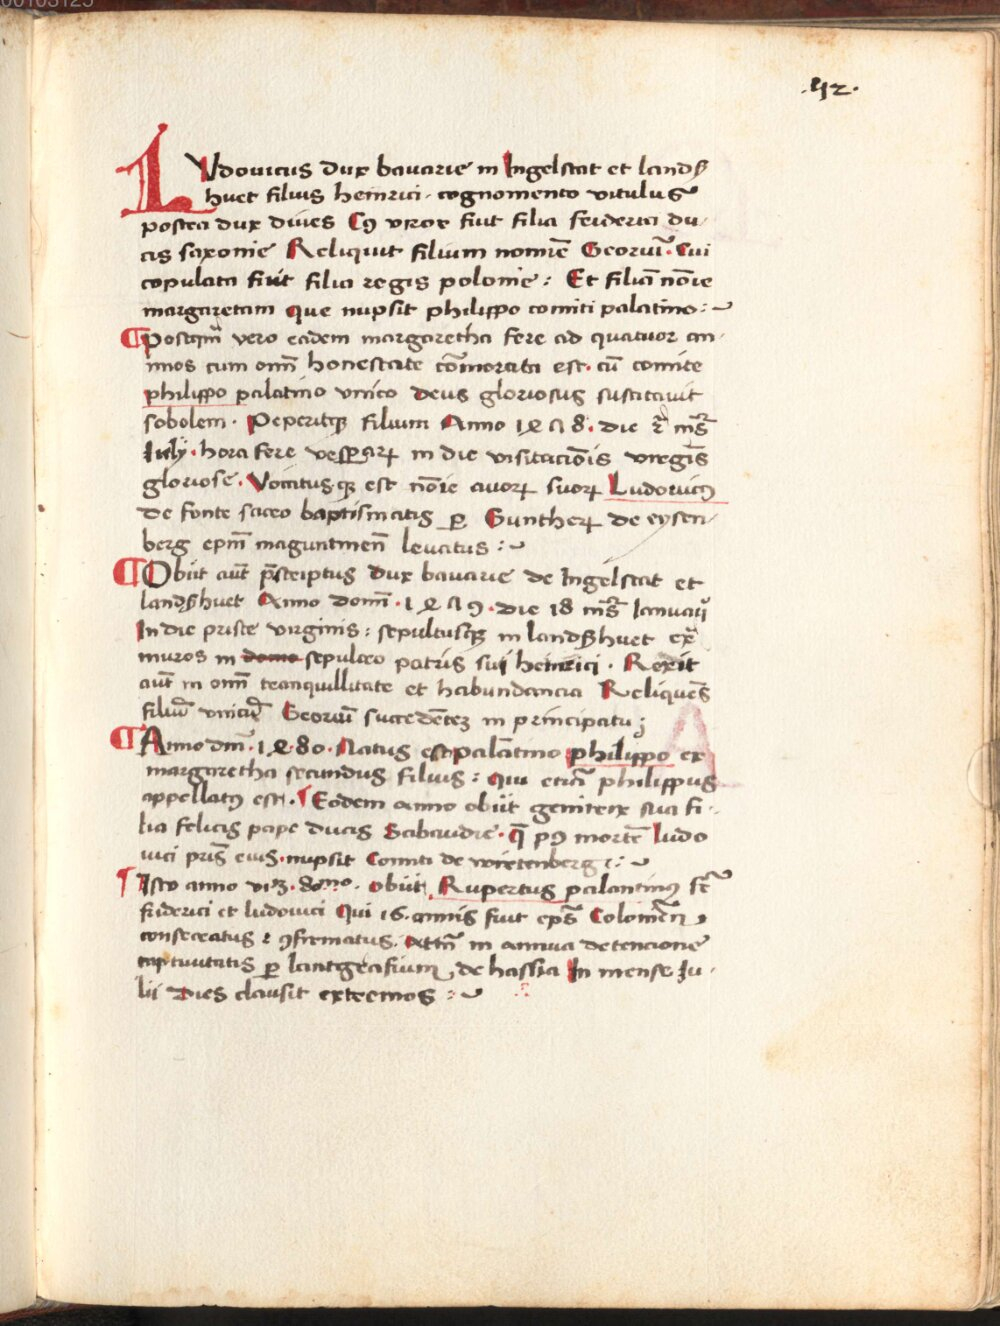 00103125
.42.
LVdouicus dux bauarie in Ingelstat et landß
huet filius heinrici · cognomento vitulus
postea dux diues Cꝰ vxor fuit filia friderici du-
cis saxonie Reliquit filium nomīe Georiū · Cui
copulata fuit filia regis polonie : Et filiā nōie
margaretam que nupsit philippo comiti palatino :~
¶ Postqm̄ vero eadem margaretha fere ad quatuor an-
nnos cum om̄i honestate cōmorata est · cū comite
philippo palatino vnico deus gloriosus suscitauit
sobolem · Peperitqꝫ filium Anno 1478 · die 2ᵃ mēs̄
July · hora fere vesꝑaꝝ in die visitacōis virgīs
gloriose · Vocitusqꝫ est nōie auoꝝ suoꝝ Ludouicꝰ
de fonte sacro baptismatis ꝑ Guntheꝝ de eysen-
berg ep̄m maguntinen̄ leuatus :~
¶ Obiit aūt p̄scriptus dux bauarie de Ingelstat et
landßhuet Anno domī · 1479 · die 18 mēs̄ Ianuarij
In die priste virginis : sepultusqꝫ in landßhuet ex̄
muros in domo sepulcro patris sui heinrici · Rexit
aūt in om̄i tranquillitate et habundancia Reliquēs
filiū vnicū Georiū succedētez in principatu ;
¶ Anno dm̄ · 1480 · Natus est palatino philippo ex
margaretha secundus filius : Qui etiā philippus
appellatꝰ est · ¶ Eodem anno obiit genitrix sua fi-
lia felicis pape ducis Sabaudie · q̄ pꝰ mortē ludo
uici pris̄ eius · nupsit Comiti de wirtenberg :~
¶ Isto anno viꝫ · 80mo · obiit Rupertus palantinꝰ fr̄
friderici et ludouici Qui 16 · annis fuit ep̄s Colonien̄
consecratus ⁊ ꝯfirmatus · Attn̄ in annua detencione
captiuitatis ꝑ lantgrafium de hassia In mense Iu-
lii Dies clausit extremos :~